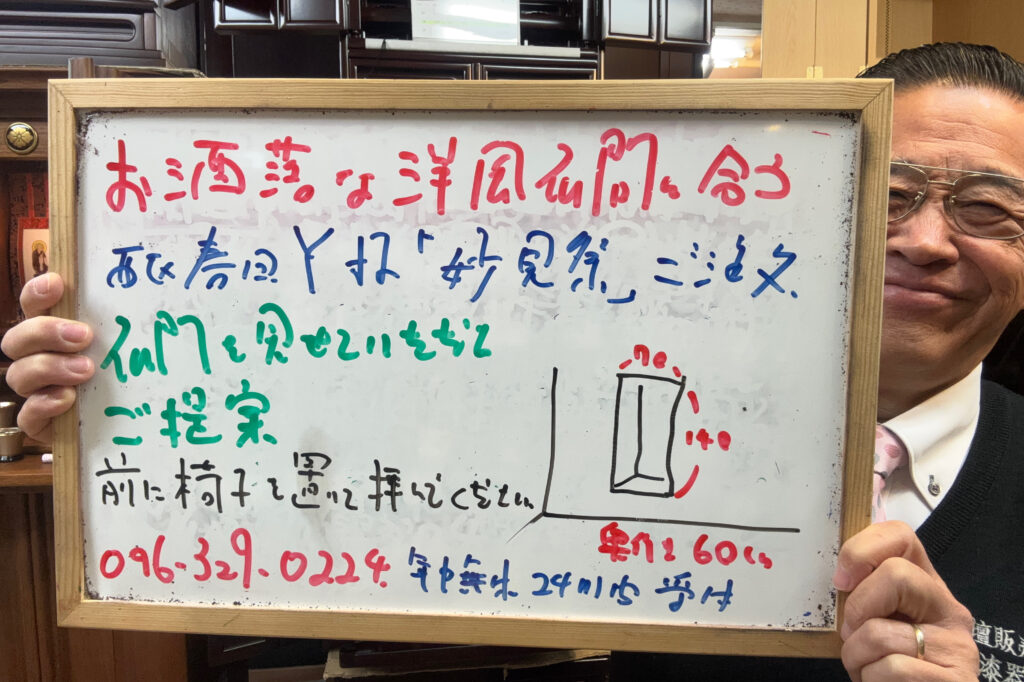 お洒落な洋風仏間に合う
西区春日Y様「妙見祭」ご注文
仏間を見せていただいて
ご提案
70
140
前に椅子を置いて拝んでください
奥行き60cm
096-329-0224 年中無休 24時間 受付
壇販
漆器